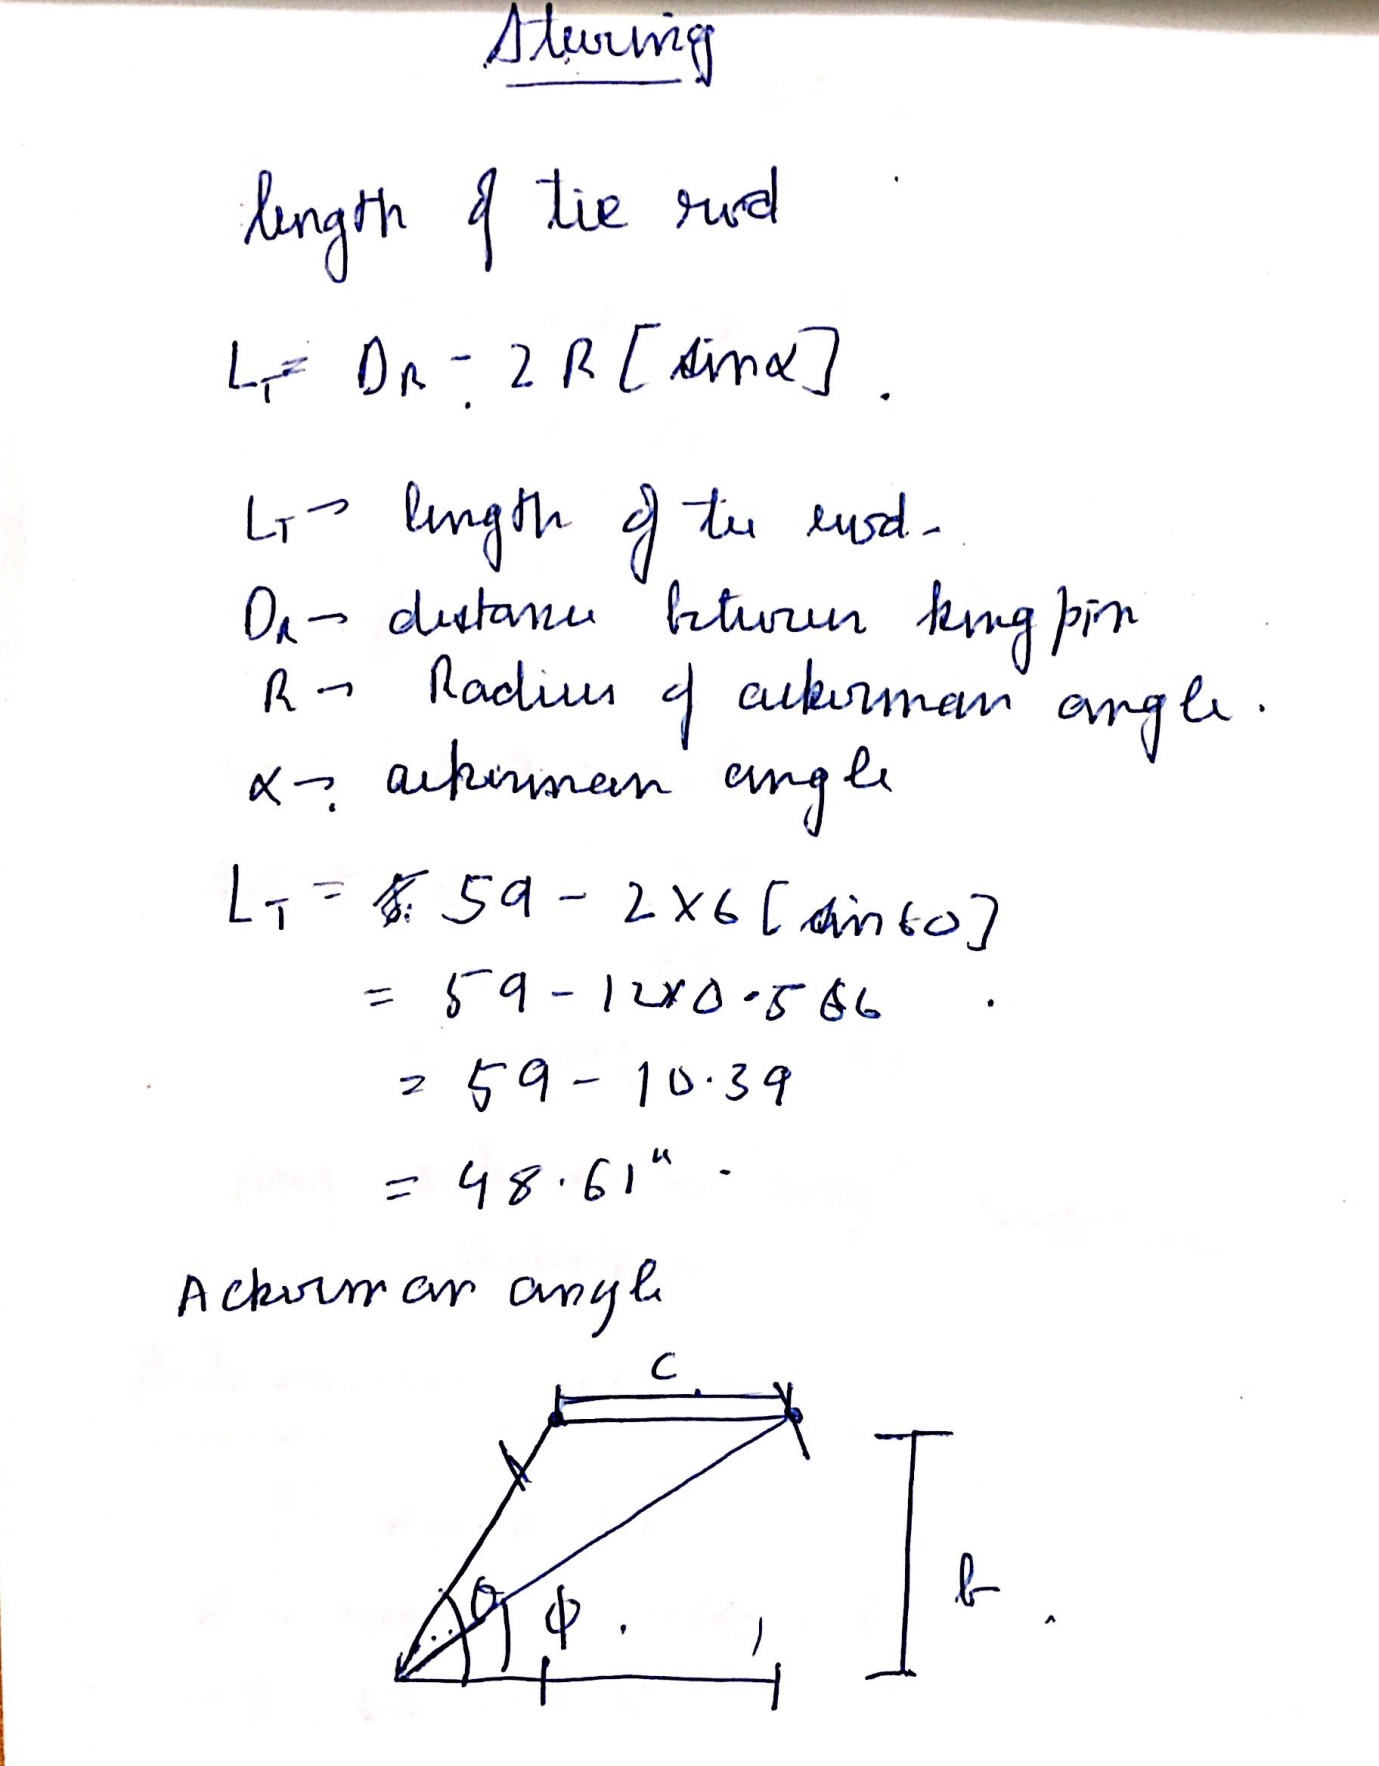 Steering
length of tie rod
L_T = D_R - 2 R [ sin α ] .
L_T → length of tie rod.
D_R → distance between king pin
R → Radius of ackerman angle.
α → ackerman angle
L_T = 59 - 2 × 6 [ sin 60 ]
= 59 - 12 × 0.566
= 59 - 10.39
= 48.61" .
Ackerman angle
C
θ ϕ b